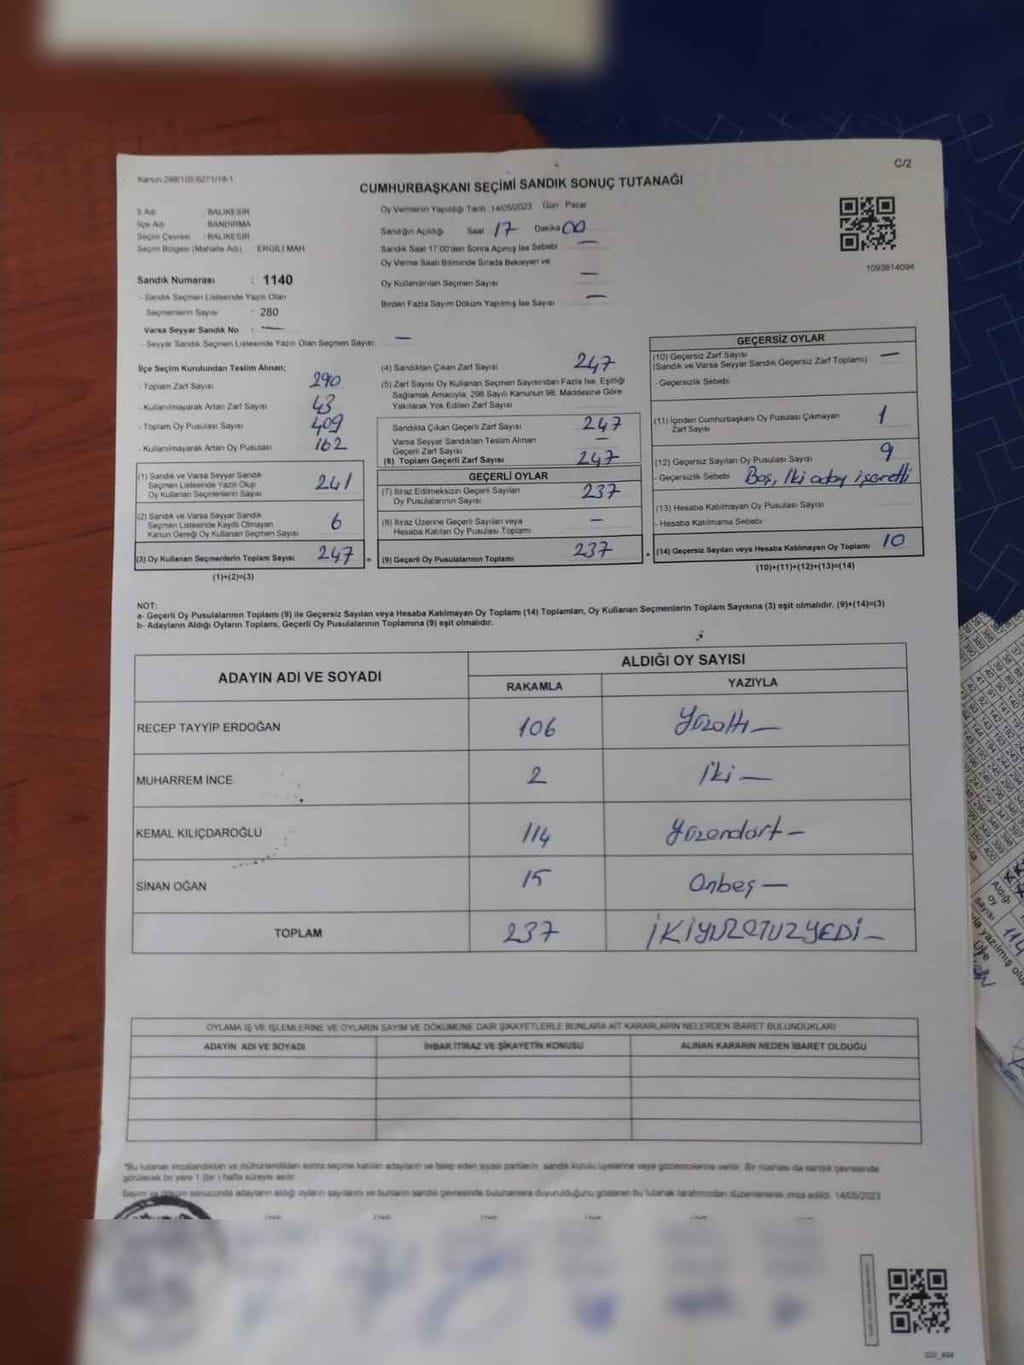 Kanun:298/105 6271/18-1
C/2
CUMHURBAŞKANI SEÇİMİ SANDIK SONUÇ TUTANAĞI
İl Adı BALIKESİR
İlçe Adı BANDIRMA
Seçim Çevresi : BALIKESİR
Seçim Bölgesi (Mahalle Adı) ERGİLİ MAH
Sandık Numarası : 1140
- Sandık Seçmen Listesinde Yazılı Olan
Seçmenlerin Sayısı : 280
Varsa Seyyar Sandık No : —
- Seyyar Sandık Seçmen Listesinde Yazılı Olan Seçmen Sayısı —
Oy Vermenin Yapıldığı Tarih 14/05/2023 Gün Pazar
Sandığın Açıldığı Saat 17 Dakika 00
Sandık Saat 17:00'den Sonra Açılmış İse Sebebi —
Oy Verme Saati Bitiminde Sırada Bekleyen ve
Oy Kullandırılan Seçmen Sayısı —
Birden Fazla Sayım Döküm Yapılmış İse Sayısı —
1093814094
İlçe Seçim Kurulundan Teslim Alınan;
- Toplam Zarf Sayısı 290
- Kullanılmayarak Artan Zarf Sayısı 43
- Toplam Oy Pusulası Sayısı 409
- Kullanılmayarak Artan Oy Pusulası 162
(1) Sandık ve Varsa Seyyar Sandık
Seçmen Listesinde Yazılı Olup
Oy Kullanan Seçmenlerin Sayısı 241
(2) Sandık ve Varsa Seyyar Sandık
Seçmen Listesinde Kayıtlı Olmayan
Kanun Gereği Oy Kullanan Seçmen Sayısı 6
(3) Oy Kullanan Seçmenlerin Toplam Sayısı 247 =
(1)+(2)=(3)
(4) Sandıktan Çıkan Zarf Sayısı 247
(5) Zarf Sayısı Oy Kullanan Seçmen Sayısından Fazla İse, Eşitliği
Sağlamak Amacıyla; 298 Sayılı Kanunun 98. Maddesine Göre
Yakılarak Yok Edilen Zarf Sayısı
Sandıkta Çıkan Geçerli Zarf Sayısı 247
Varsa Seyyar Sandıktan Teslim Alınan
Geçerli Zarf Sayısı —
(6) Toplam Geçerli Zarf Sayısı 247
GEÇERLİ OYLAR
(7) İtiraz Edilmeksizin Geçerli Sayılan
Oy Pusulalarının Sayısı 237
(8) İtiraz Üzerine Geçerli Sayılan veya
Hesaba Katılan Oy Pusulası Toplamı —
(9) Geçerli Oy Pusulalarının Toplamı 237 +
GEÇERSİZ OYLAR
(10) Geçersiz Zarf Sayısı —
(Sandık ve Varsa Seyyar Sandık Geçersiz Zarf Toplamı)
- Geçersizlik Sebebi
(11) İçinden Cumhurbaşkanı Oy Pusulası Çıkmayan
Zarf Sayısı 1
(12) Geçersiz Sayılan Oy Pusulası Sayısı 9
- Geçersizlik Sebebi Boş, İki aday işaretli
(13) Hesaba Katılmayan Oy Pusulası Sayısı
- Hesaba Katılmama Sebebi
(14) Geçersiz Sayılan veya Hesaba Katılmayan Oy Toplamı 10
(10)+(11)+(12)+(13)=(14)
NOT:
a- Geçerli Oy Pusulalarının Toplamı (9) ile Geçersiz Sayılan veya Hesaba Katılmayan Oy Toplamı (14) Toplamları, Oy Kullanan Seçmenlerin Toplam Sayısına (3) eşit olmalıdır. (9)+(14)=(3)
b- Adayların Aldığı Oyların Toplamı, Geçerli Oy Pusulalarının Toplamına (9) eşit olmalıdır.
ADAYIN ADI VE SOYADI ALDIĞI OY SAYISI
RAKAMLA YAZIYLA
RECEP TAYYİP ERDOĞAN 106 Yüzaltı —
MUHARREM İNCE 2 İki —
KEMAL KILIÇDAROĞLU 114 Yüzondört —
SİNAN OĞAN 15 Onbeş —
TOPLAM 237 İKİYÜZOTUZYEDİ —
OYLAMA İŞ VE İŞLEMLERİNE VE OYLARIN SAYIM VE DÖKÜMÜNE DAİR ŞİKAYETLERLE BUNLARA AİT KARARLARIN NELERDEN İBARET BULUNDUKLARI
ADAYIN ADI VE SOYADI İHBAR İTİRAZ VE ŞİKAYETİN KONUSU ALINAN KARARIN NEDEN İBARET OLDUĞU
*Bu tutanak imzalandıktan ve mühürlendikten sonra seçime katılan adayların ve talep eden siyasi partilerin, sandık kurulu üyelerine veya gözlemcilerine verilir. Bir nüshası da sandık çevresinde
görülecek bir yere 1 (bir) hafta süreyle asılır.
Sayım ve döküm sonucunda adayların aldığı oyların sayılarını ve bunların sandık çevresinde bulunanlara duyurulduğunu gösteren bu tutanak tarafımızdan düzenlenerek imza edildi. 14/05/2023